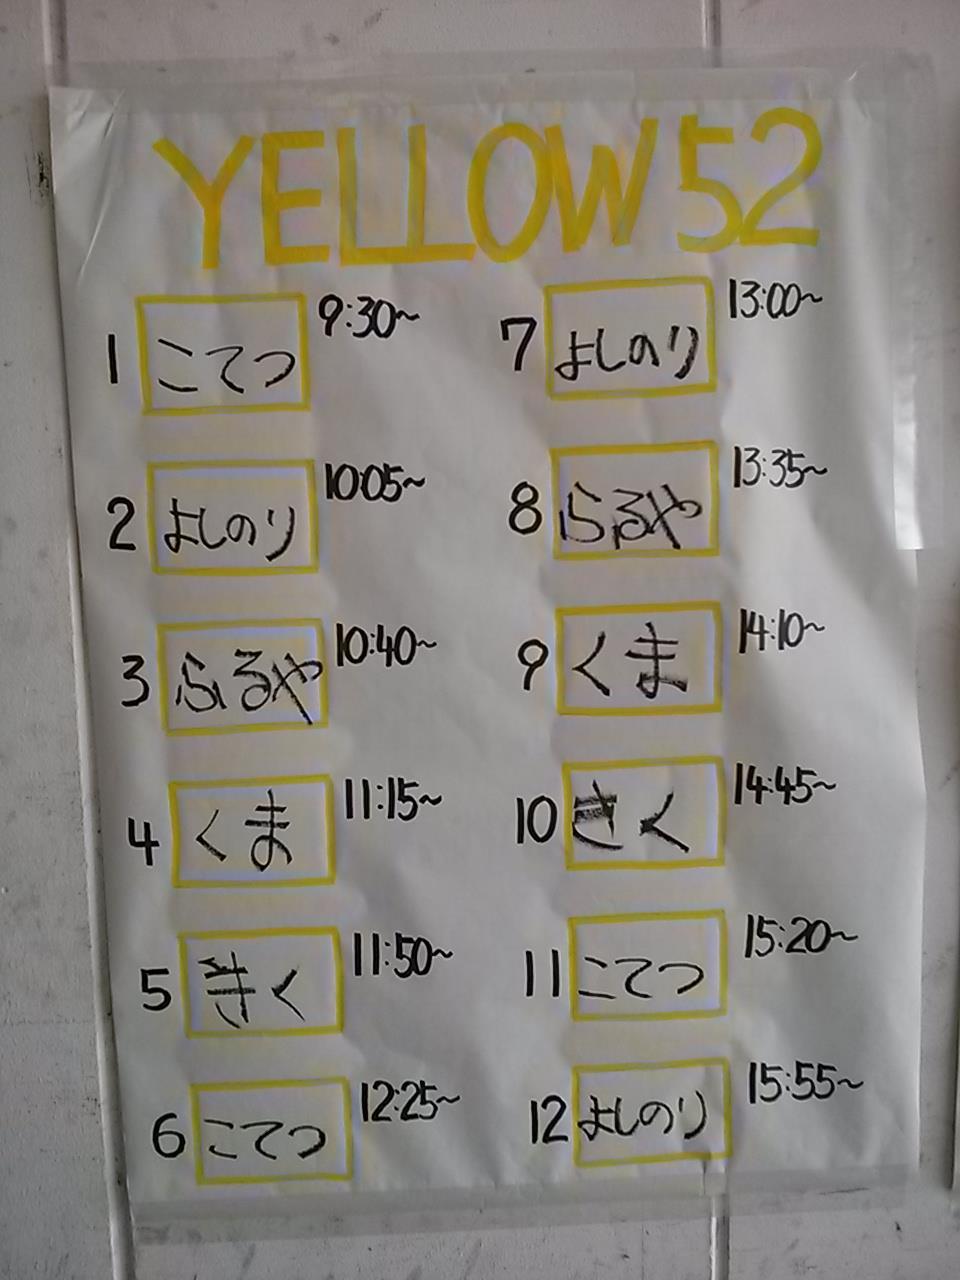 YELLOW 52
1 こてつ 9:30~
2 よしのり 10:05~
3 ふるや 10:40~
4 くま 11:15~
5 きく 11:50~
6 こてつ 12:25~
7 よしのり 13:00~
8 ふるや 13:35~
9 くま 14:10~
10 きく 14:45~
11 こてつ 15:20~
12 よしのり 15:55~